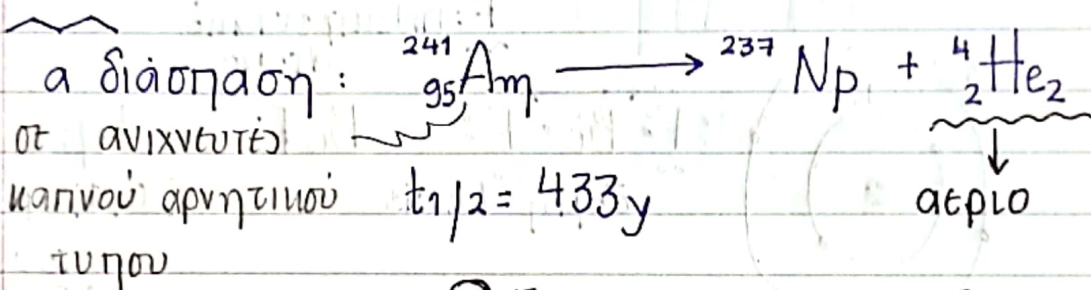 α διάσπαση: ²⁴¹₉₅Am ⟶ ²³⁷Np + ⁴₂He₂
σε ανιχνευτές ↓
καπνού αρνητικού t1/2 = 433y αεριο
τυπου